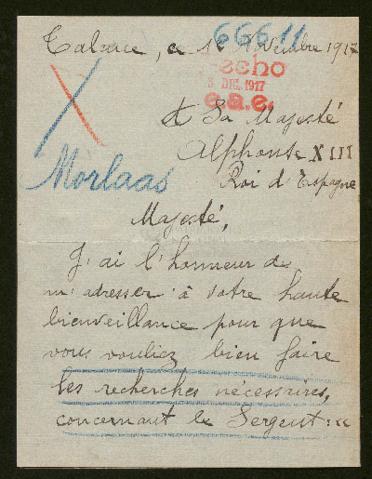 66611
Talence, ce 1 Novembre 1917
echo
3 DIC. 1917
e.a.e.
A Sa Majesté
Alphonse XIII
Roi d'Espagne
Morlaas
Majesté,
J'ai l'honneur de
m'adresser à votre haute
bienveillance pour que
vous vouliez bien faire
les recherches nécessaires,
concernant le Sergent : "